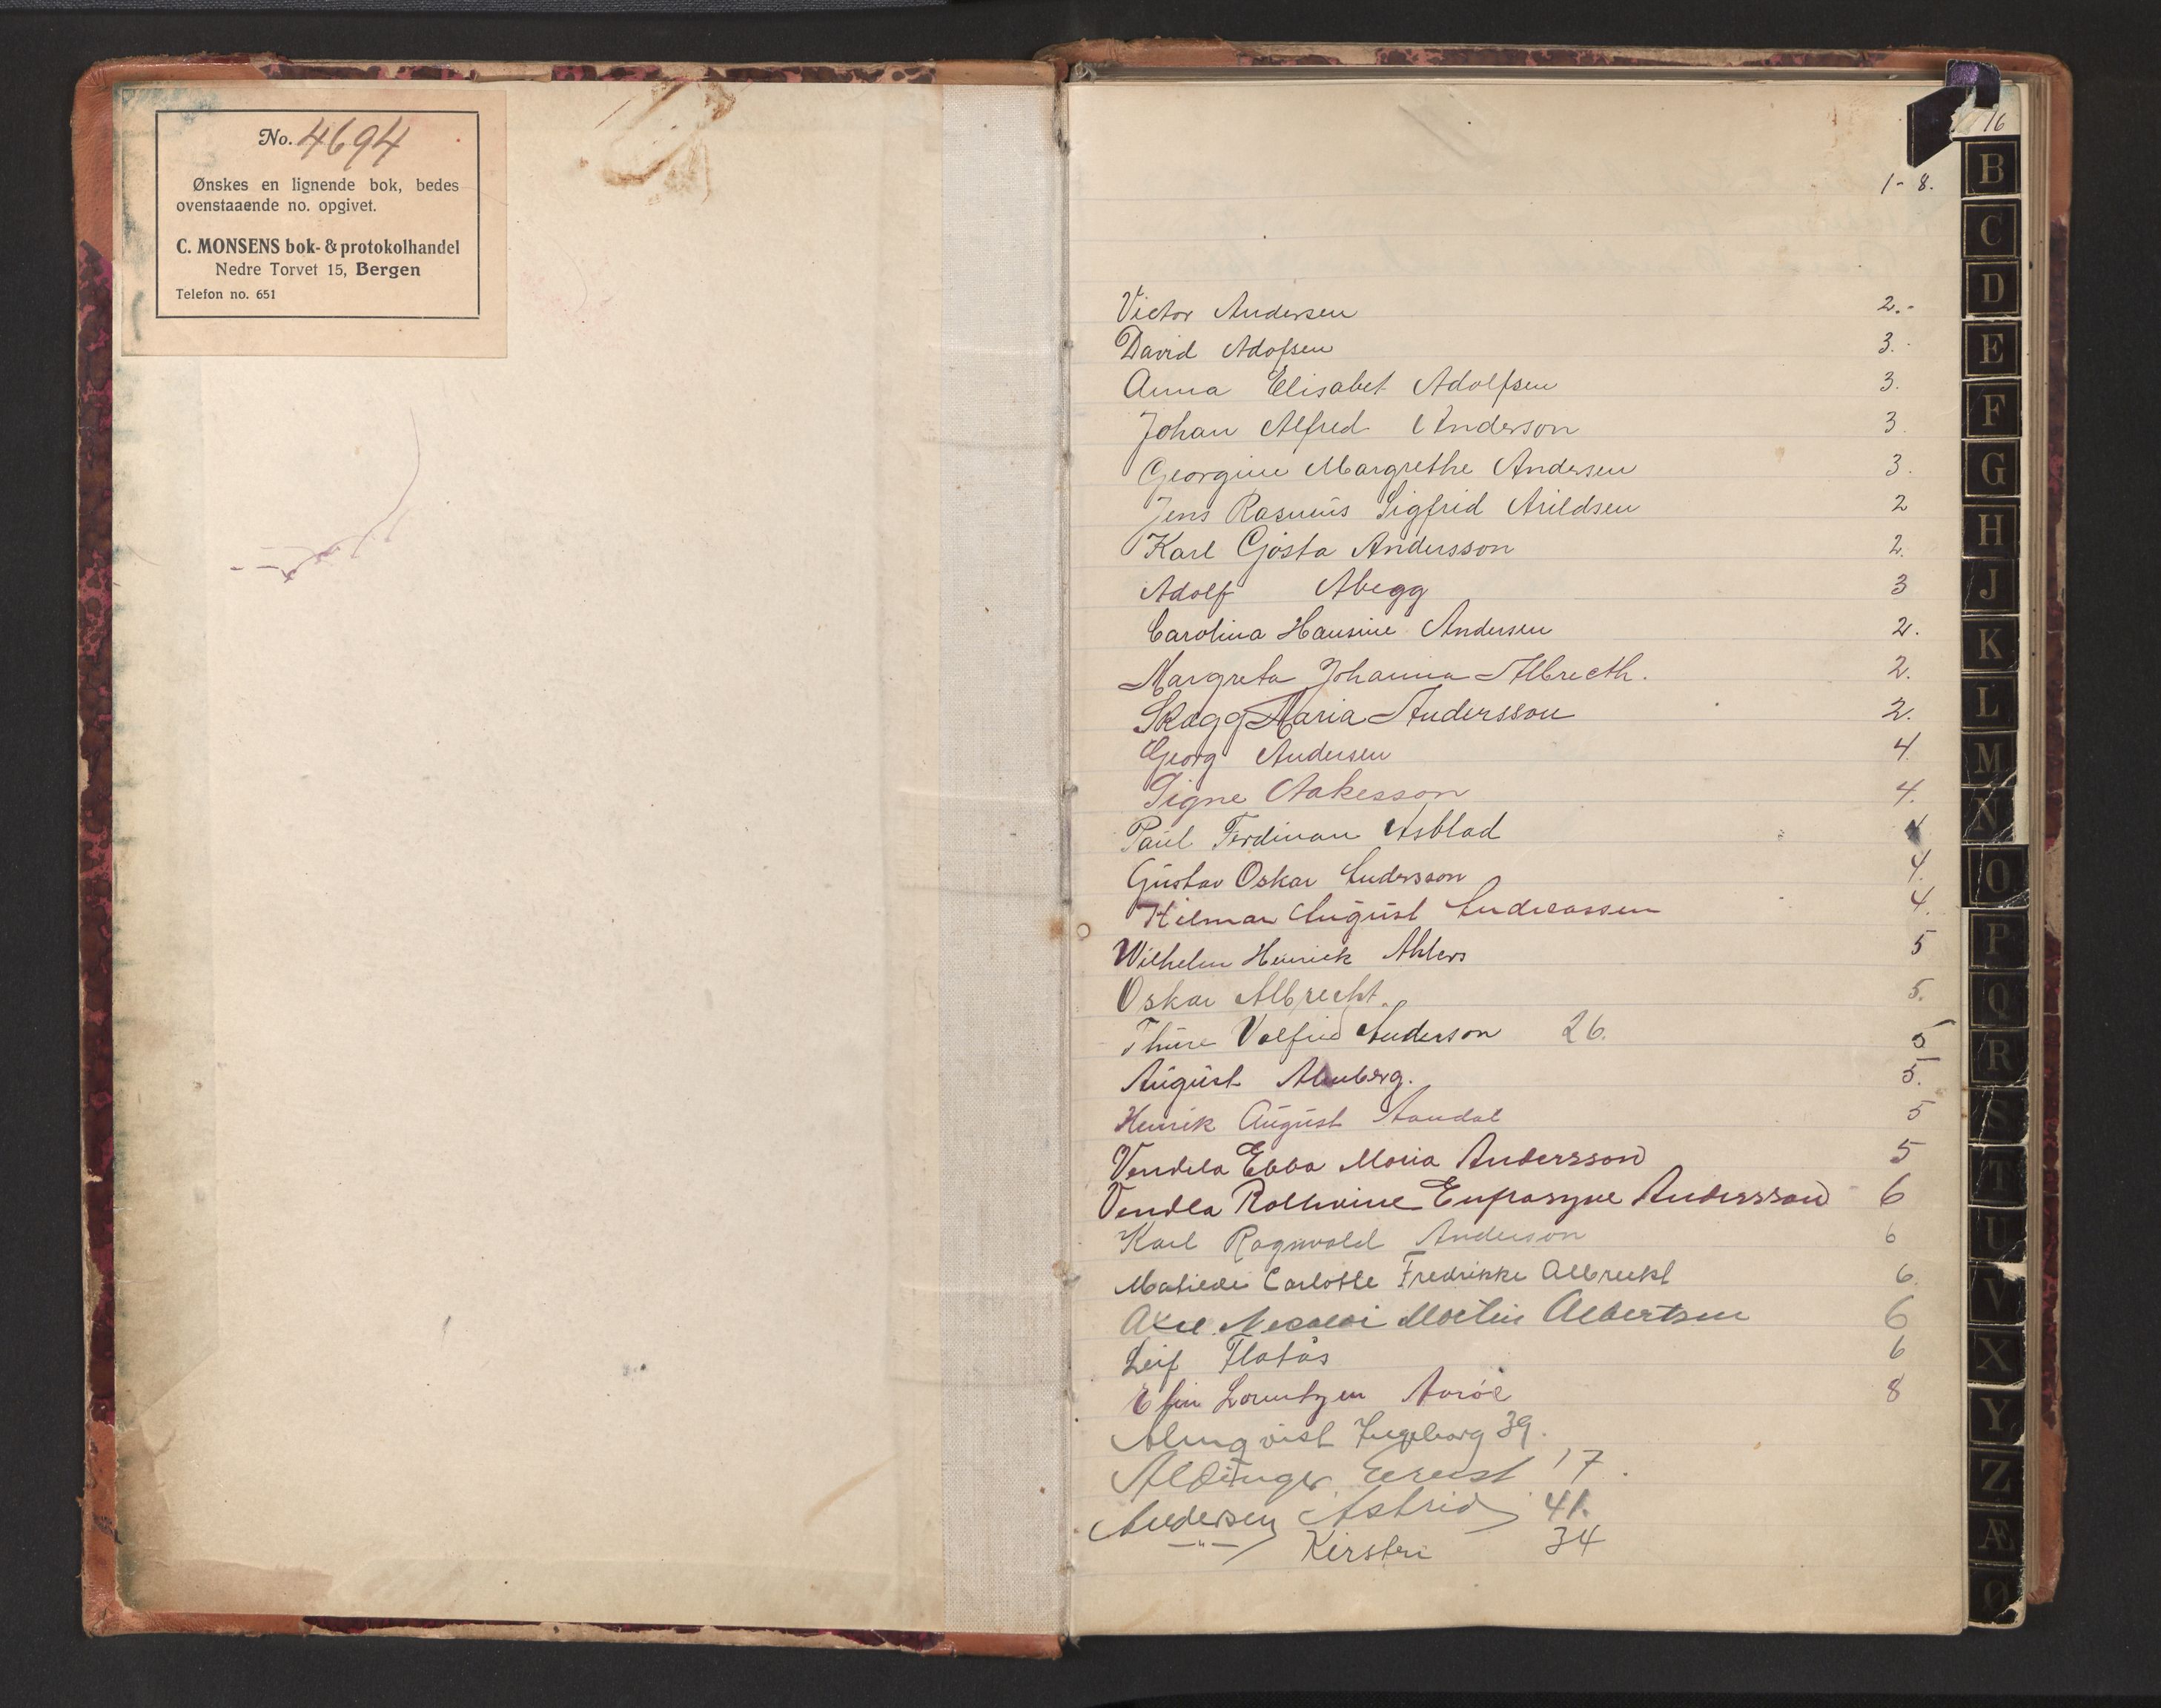 No. 4694
Ønskes en lignende bok, bedes
ovenstaaende no. opgivet.
C. MONSENS bok- & protokolhandel
Nedre Torvet 15, Bergen
Telefon no. 651
16
1-8.
Victor Andersen 2.-
David Adofsen 3.
Anna Elisabet Adolfsen 3.
Johan Alfred Anderson 3.
Georgine Margrethe Andersen 3.
Jens Rasmus Sigfrid Arildsen 2
Karl Gösta Andersson 2.
Adolf Abegg 3
Carolina Hansine Andersen 2.
Margreta Johanna Albrecth. 2.
Skagg Maria Andersson 2.
Georg Andersen 4.
Signe Aakesson 4.
Paul Ferdinan Asblad
Gustav Oskar Andersson 4.
Hilmar August Andreassen 4.
Wilhelm Henrick Ahlers 5
Oskar Albrecht. 5.
Thure Valfrid Anderson 26. 5
August Almberg. 5.
Henrik August Aandal 5
Vendela Ebba Maria Andersson 5
Vendla Eufrasyne Andersson 6
Karl Ragnvald Anderson 6
Carlotte Fredrikke Albreckt 6.
Axel Martin Albertsen 6
Leif Flatås 6
Lorentzen 8
Almqvist Ingeborg 39.
Aldinger Ernst 17.
Andersen Astrid 41.
—"— Kirsten 34
B
C
D
E
F
G
H
J
K
L
M
N
O
P
Q
R
S
T
U
V
X
Y
Z
Æ
Ø